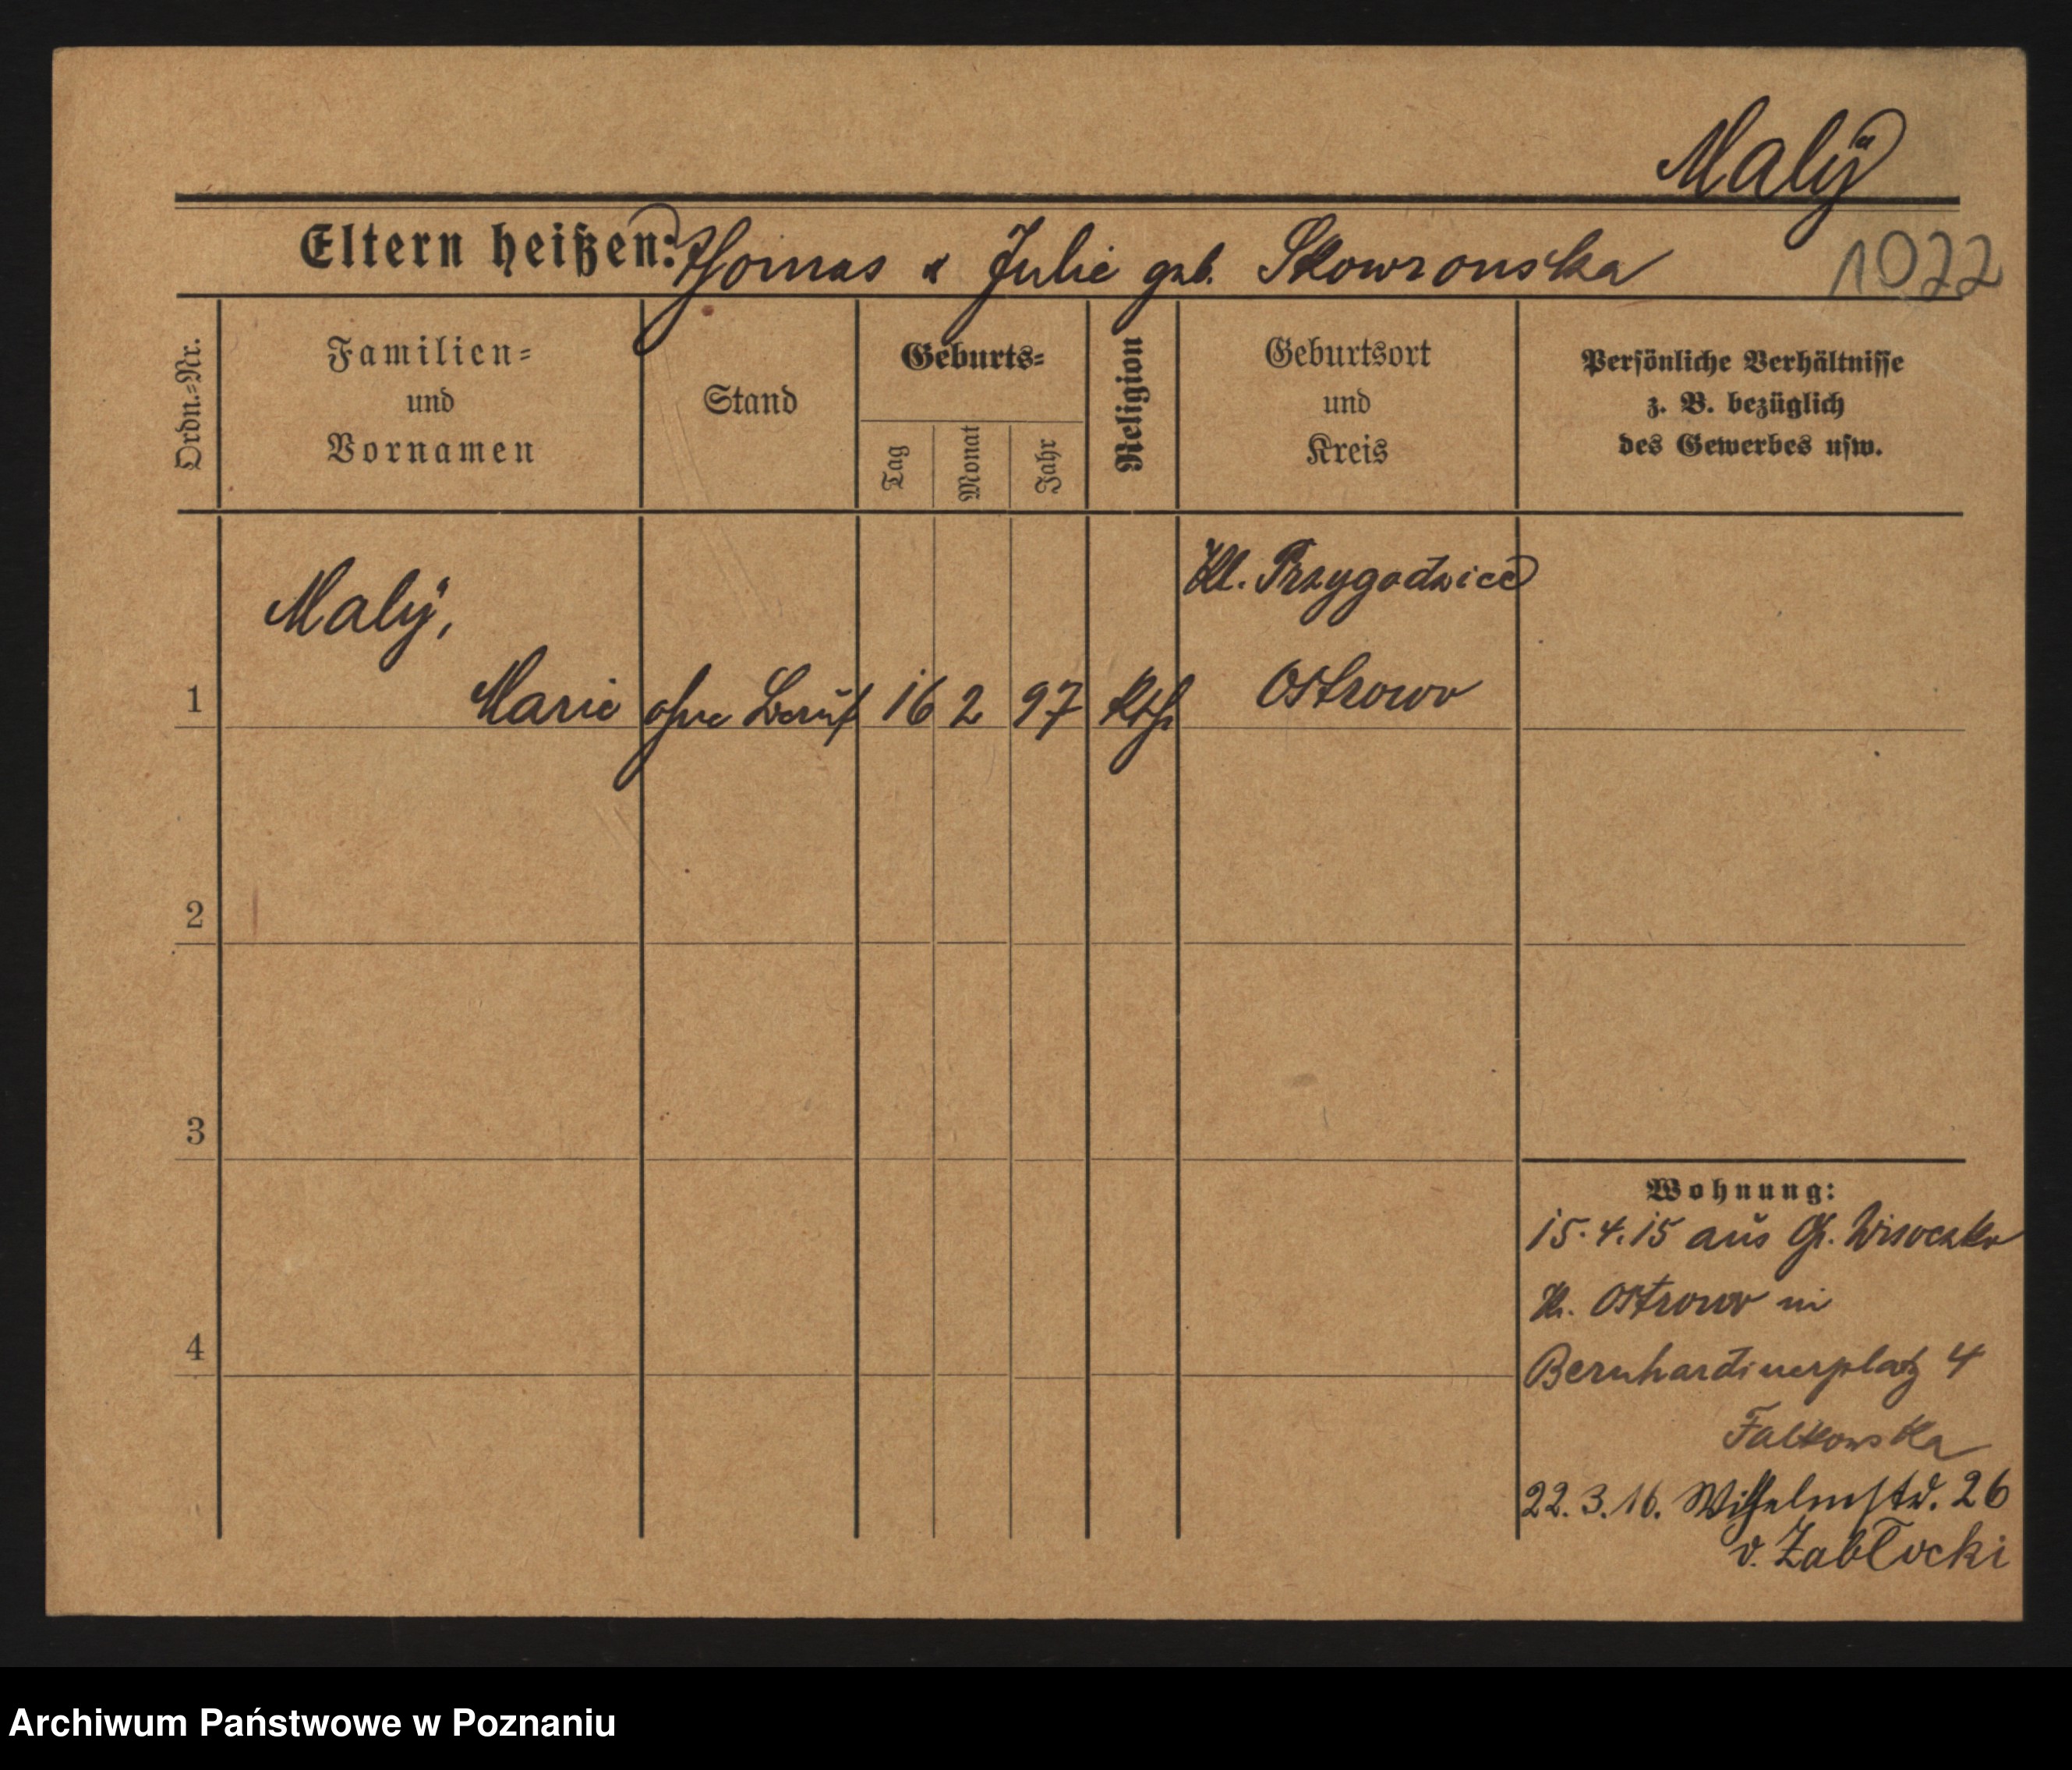 Malÿ
Eltern heißen: Thomas & Julie geb. Skowronska
1022
Ordn.-Nr.
Familien-
und
Vornamen
Stand
Geburts-
Tag
Monat
Jahr
Religion
Geburtsort
und
Kreis
Persönliche Verhältnisse
z. B. bezüglich
des Gewerbes usw.
Kl. Przygodzice
Malÿ,
1 Marie ohne Beruf 16 2 97 Kth Ostrowo
2
3
4
Wohnung:
15.4.15 aus Gr. Wisoczko
Kr. Ostrowo in
Bernhardinerplatz 4
Falkowska
22.3.16. Wilhelmstr. 26
v. Zabłocki
Archiwum Państwowe w Poznaniu